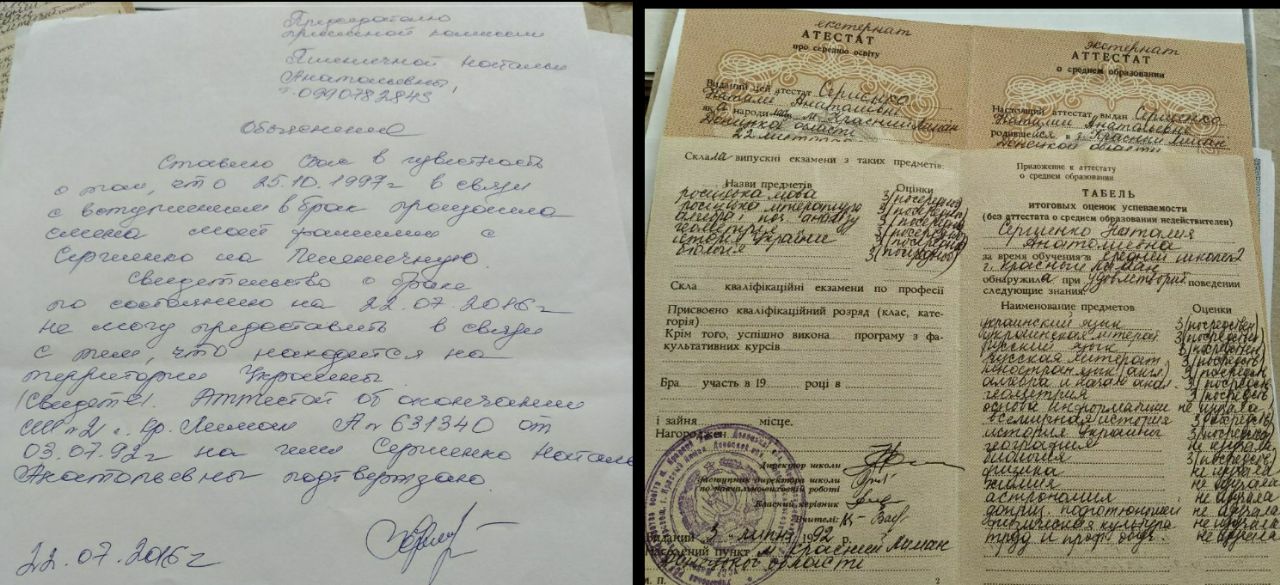 Председателю
приемной комиссии
Пшеничной Натальи
Анатольевны,
т. 0990782843
Объяснение
Ставлю Вас в известность
о том, что 25.10.1997г в связи
с вступлением в брак произошла
смена моей фамилии с
Сергиенко на Пшеничную.
Свидетельство о браке
по состоянию на 22.07.2016г
не могу предоставить в связи
с тем, что находится на
территории Украины.
Аттестат об окончании
г. Кр. Лиман А № 631340 от
03.07.92г на имя Сергиенко Наталь
Анатольевны подтверждаю.
22.07.2016г
екстернат
АТЕСТАТ
про середню освіту
Виданий цей атестат Сергієнко
Наталії Анатоліївні
м. Красний Лиман
Донецької області
Склала випускні екзамени з таких предметів:
Назви предметів Оцінки
російська мова 3 (посередньо)
російська література 3 (посередньо)
алгебра і поч. аналізу 3 (посередньо)
геометрія 3 (посередньо)
історія України 3 (посередньо)
біологія 3 (посередньо)
Скла кваліфікаційні екзамени по професії
Присвоєно кваліфікаційний розряд (клас, кате-
горія)
Крім того, успішно викона програму з фа-
культативних курсів
Бра участь в 19 році в
і зайня місце.
Нагороджен
Директор школи
Заступник директора школи
по навчально-виховній роботі
Класний керівник
Учителі:
Виданий 3 липня 1992
Населений пункт м. Красний Лиман
Донецької області
М. П.
2
экстернат
АТТЕСТАТ
о среднем образовании
Настоящий аттестат выдан Сергиенко
Наталии Анатольевне
родившейся в г. Красный Лиман
Донецкой области
Приложение к аттестату
о среднем образовании
ТАБЕЛЬ
итоговых оценок успеваемости
(без аттестата о среднем образовании недействителен)
Сергиенко Наталия
Анатолиевна
за время обучения в средней школе №2
г. Красный Лиман
обнаружила при удовлетворит. поведении
следующие знания:
Наименование предметов Оценки
украинский язык 3 (посредствен)
украинская литерат 3 (посредствен)
русский язык 3 (посредств)
русская литерат 3 (посредств)
иностран. язык (англ) 3 (посредств)
алгебра и начала анал. 3 (посредств)
геометрия 3 (посредств)
основы информатики не изучала
всемирная история 3 (посредств)
история Украины 3 (посредств)
география не изучала
биология 3 (посредств)
физика не изучала
химия не изучала
астрономия не изучала
доприз. подготовка не изучала
физическая культура не изучала
труд и проф. обуч. не изучала